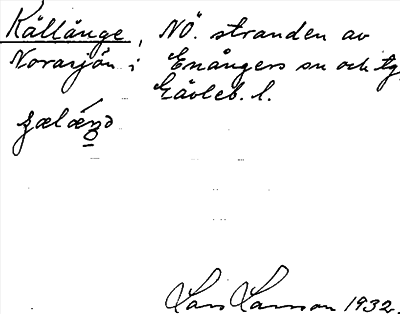 Källånge, NÖ. stranden av
Norasjön i Enångers sn och tg,
Gävleb. l.
Lars Larsson 1932.